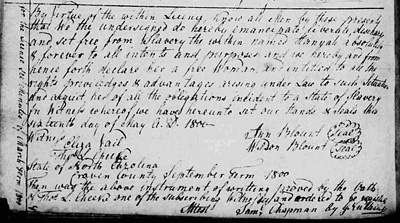 By virtue of the within Licence, know all men by these presents
that We the undersigned do hereby emancipate, liberate, discharge
and set free from Slavery the within named absolutely
& forever to all intents and purposes and we hereby from
hence forth declare her a free Woman, and entitled to all the
rights priviledges & advantages arising under Law to such Situation
and acquit her of all the obligations incident to a state of Slavery
In Witness whereof we have hereunto set our Hands & seals this
day of May A.D. 1800
Witness
Eliza Vail
Thos L Cheek
Ann Blount Seal
Wilson Blount Seal
State of North Carolina
Craven County September Term 1800
then was the above instrument of writing proved by the Oath
of Thos L Cheek one of the Subscribing witnesses and ordered to be
Attest Saml Chapman